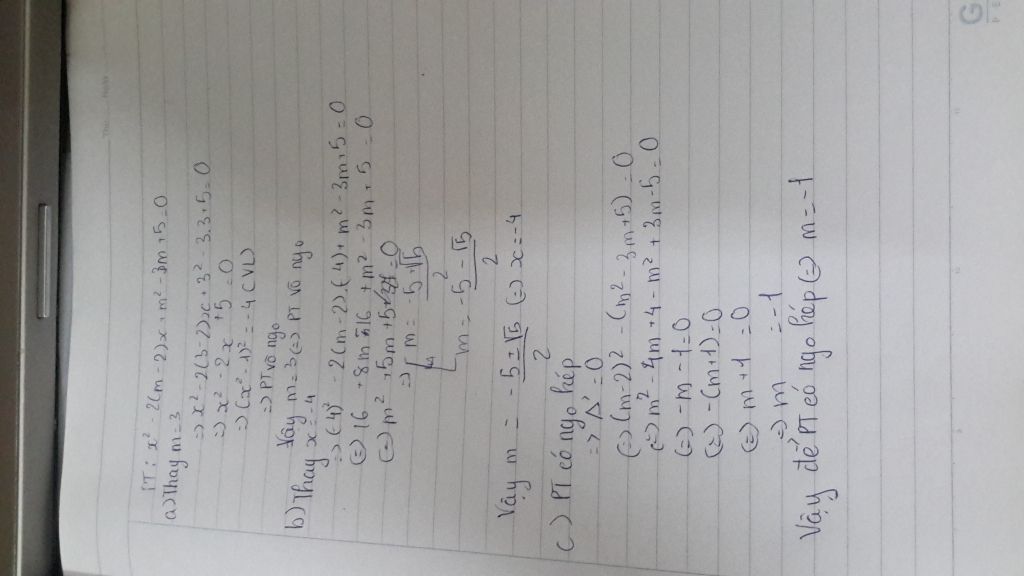 PT: x² - 2(m-2)x + m² - 3m + 5 = 0
a) Thay m = 3
=> x² - 2(3-2)x + 3² - 3.3 + 5 = 0
=> x² - 2x + 5 = 0
=> (x² - 1)² = -4 (VL)
=> PT vô ngo
Vậy m = 3 (=) PT vô ngo
b) Thay x = -4
=> (-4)² - 2(m-2).(-4) + m² - 3m + 5 = 0
(=) 16 + 8m - 16 + m² - 3m + 5 = 0
(=) m² + 5m + 5 = 0
=> [ m = -5 + √5 / 2
[ m = -5 - √5 / 2
Vậy m = -5 ± √5 / 2 (=) x = -4
c) PT có ngo kép
=> Δ' = 0
(=) (m-2)² - (m² - 3m + 5) = 0
(=) m² - 4m + 4 - m² + 3m - 5 = 0
(=) -m - 1 = 0
(=) -(m+1) = 0
(=) m + 1 = 0
=> m = -1
Vậy để PT có ngo kép (=) m = -1
G